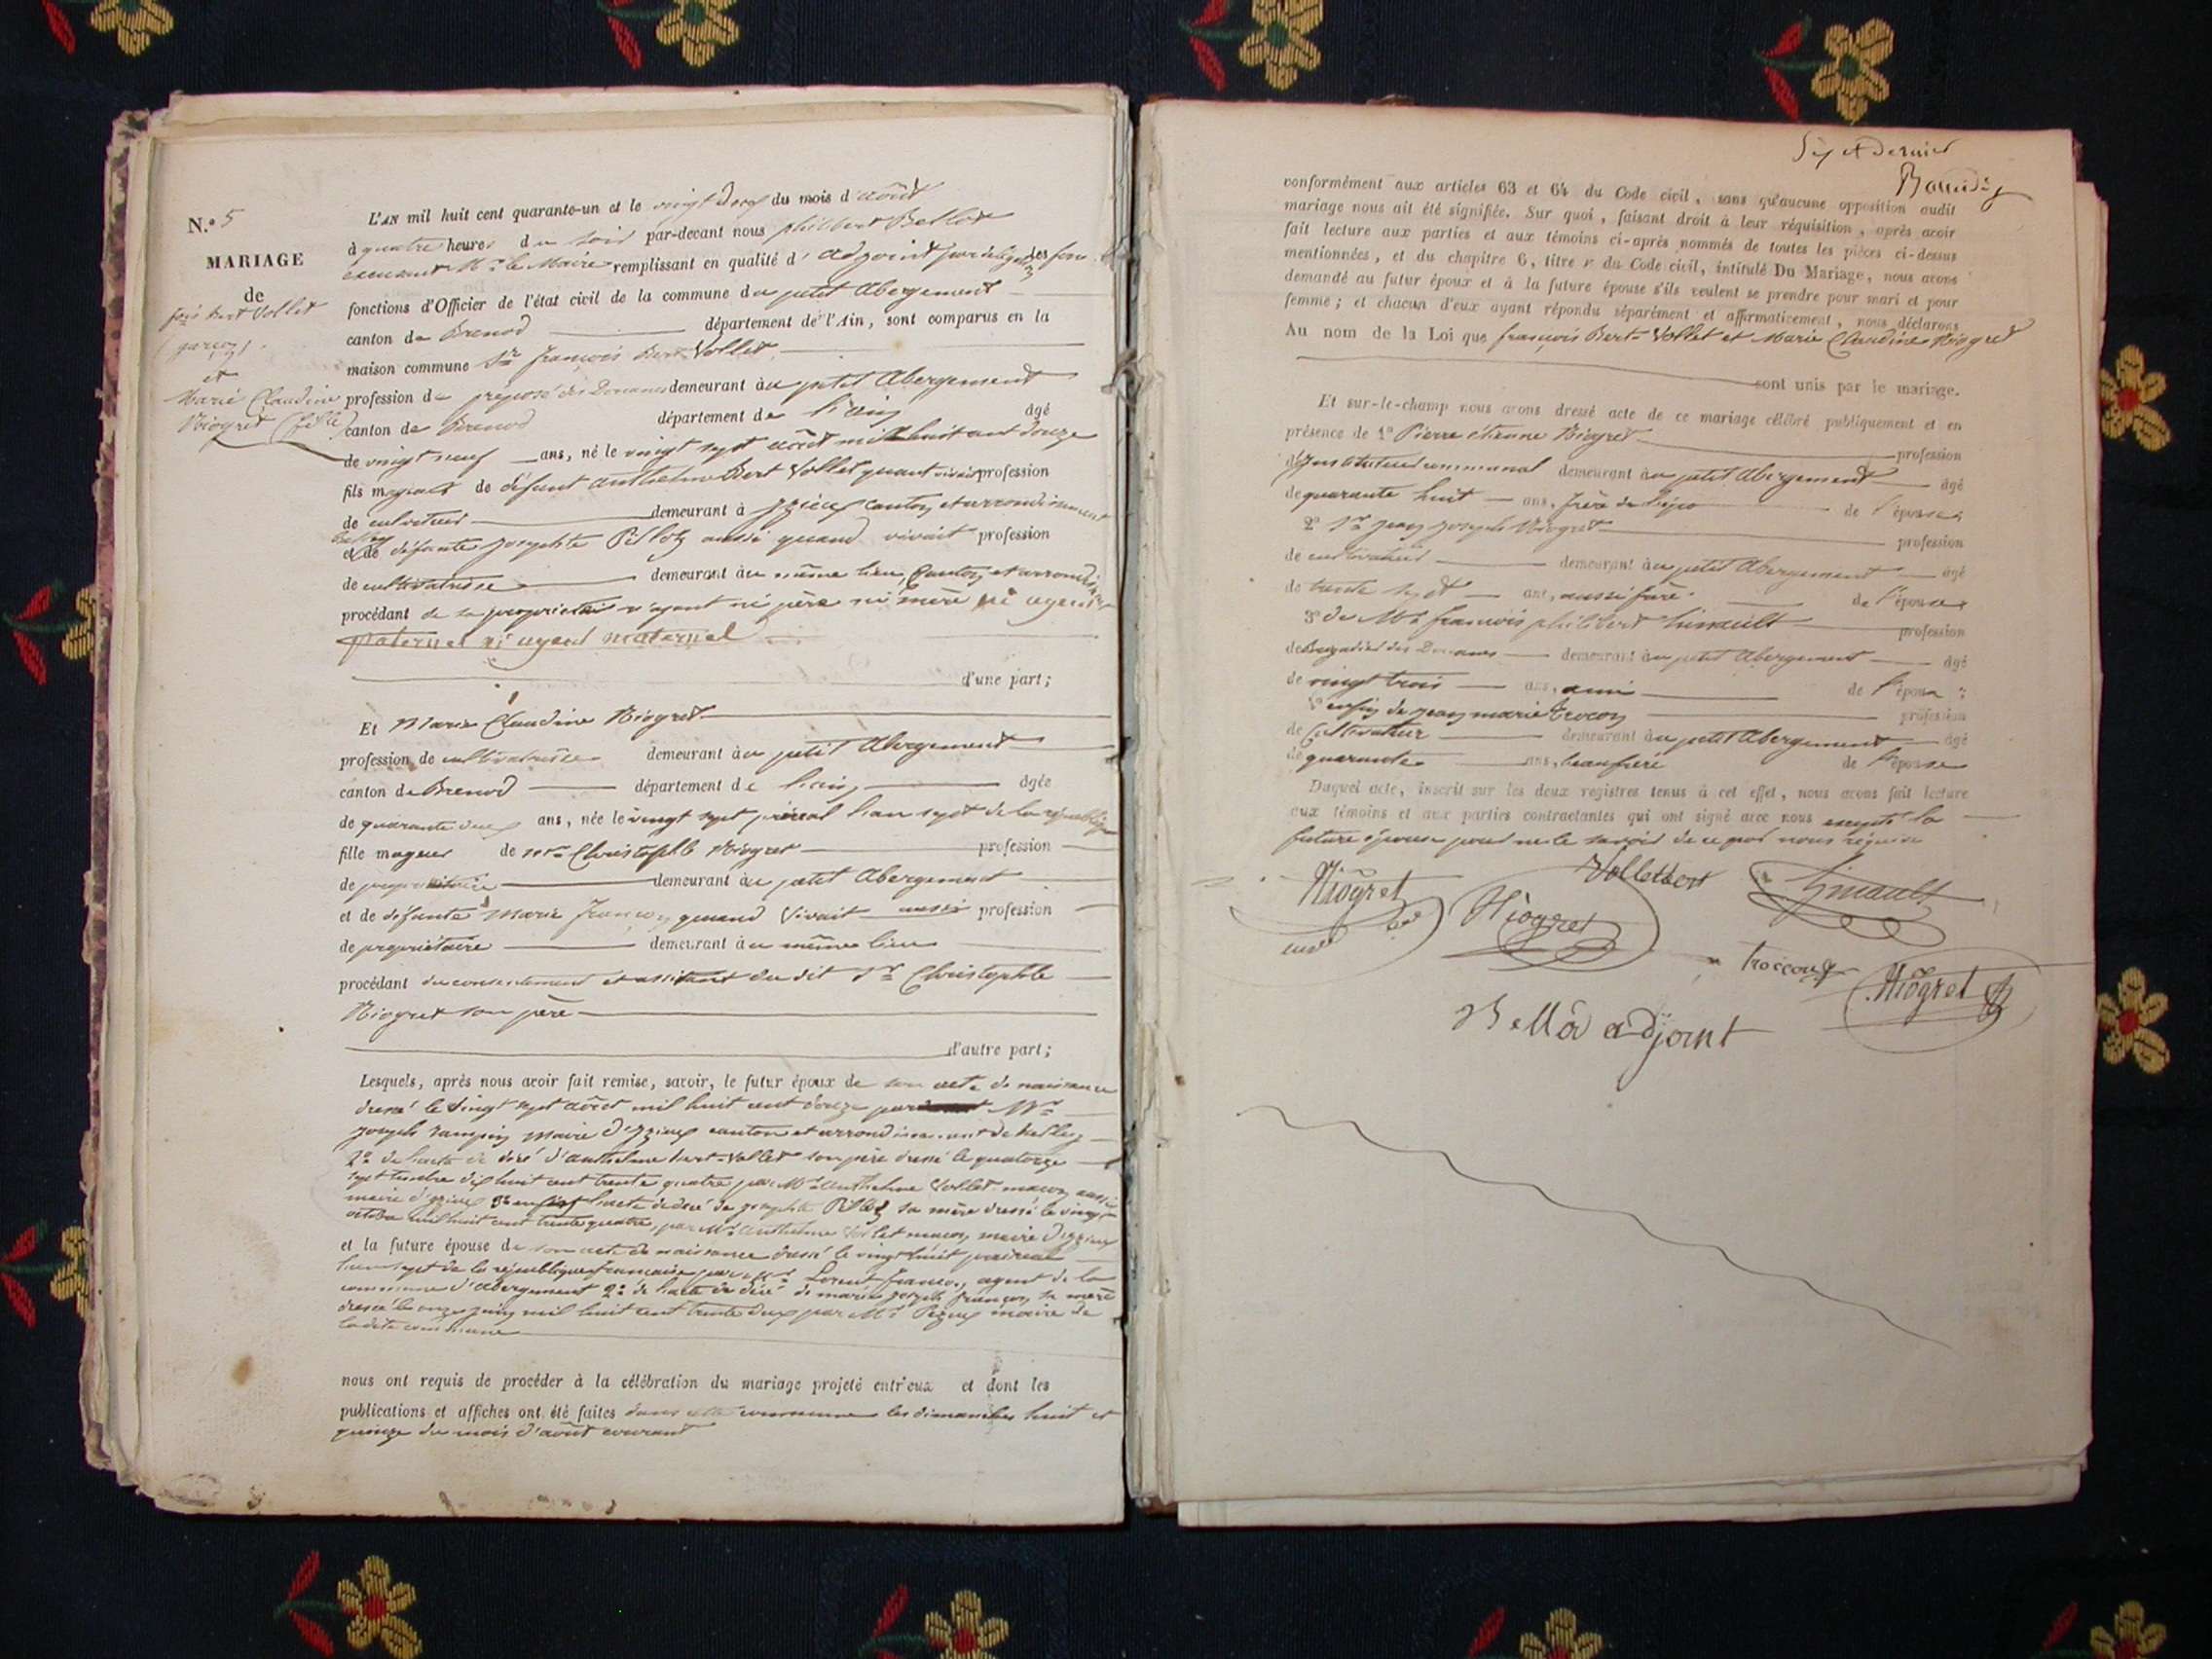 N.° 5
MARIAGE
de
Bert Vollet
(garçon)
et
Marie Claudine
Niogret (fille)
L'AN mil huit cent quarante-un et le vingt deux du mois d'août
à quatre heures du soir par-devant nous philibert Bellod
Mr le Maire remplissant en qualité d'adjoint
fonctions d'Officier de l'état civil de la commune du petit Abergement
canton de Brenod département de l'Ain, sont comparus en la
maison commune Sr françois Bert-Vollet
profession de préposé des Douanes demeurant au petit Abergement
canton de Brenod département de l'ain âgé
de vingt neuf ans, né le vingt sept août mil huit cent douze
fils majeur de défunt anthelme Bert Vollet quant vivait profession
de cultivateur demeurant à Izieux canton et arrondissement
Belley
et de défunte josephte Pillotz aussi quand vivait profession
de cultivatrice demeurant au même lieu, Canton et arrondisment
procédant n'ayant ni père ni mère ni ayeul
paternel ni ayeul maternel
d'une part;
Et Marie Claudine Niogret
profession de cultivatrice demeurant au petit Abergement
canton de Brenod département de l'ain âgée
de quarante deux ans, née le vingt sept prairial l'an sept de la république
fille majeur de Mr Christophle Niogret profession
de propriétaire demeurant au petit Abergement
et de défunte Marie françon quand vivait aussi profession
de propriétaire demeurant au même lieu
procédant du consentement et assistant du dit Sr Christophle
Niogret son père
d'autre part;
Lesquels, après nous avoir fait remise, savoir, le futur époux de son acte de naissance
dressé le vingt sept août mil huit cent douze par Mr
joseph rampin Maire d'Izieux canton et arrondissement de belley
2° de l'acte de décé d'anthelme bert-Vollet son père dressé le quatorze
septembre dix huit cent trente quatre par Mr anthelme Vollet-macon aussi
maire d'Izieux 3° enfin l'acte de décé de josephte Pillotz sa mère dressé le vingt
octobre mil huit cent trente quatre, par Mr anthelme Vollet macon maire d'Izieux
et la future épouse de son acte de naissance dressé le vingt huit prairial
l'an sept de la république française par Mr Lorent françon, agent de la
commune d'abergement 2° de l'acte de décé de marie joseph françon sa mère
dressé le onze juin mil huit cent trente deux par Mr maire de
ladite commune
nous ont requis de procéder à la célébration du mariage projeté entr'eux et dont les
publications et affiches ont été faites dans cette commune les dimanches huit et
quinze du mois d'août courant
Sep et dernier
conformément aux articles 63 et 64 du Code civil, sans qu'aucune opposition audit
mariage nous ait été signifiée. Sur quoi, faisant droit à leur réquisition, après avoir
fait lecture aux parties et aux témoins ci-après nommés de toutes les pièces ci-dessus
mentionnées, et du chapitre 6, titre v du Code civil, intitulé Du Mariage, nous avons
demandé au futur époux et à la future épouse s'ils veulent se prendre pour mari et pour
femme; et chacun d'eux ayant répondu séparément et affirmativement, nous déclarons
Au nom de la Loi que françois Bert-Vollet et Marie Claudine Niogret
sont unis par le mariage.
Et sur-le-champ nous avons dressé acte de ce mariage célébré publiquement et en
présence de 1° Pierre étienne Niogret profession
d'Instituteur communal demeurant au petit Abergement âgé
de quarante huit ans, frère de l'épouse
2° Sr jean joseph Niogret profession
de cultivateur demeurant au petit Abergement âgé
de trente sept ans, aussi frère de l'épouse
3° de Mr françois philibert hinault profession
de Brigadier des Douanes demeurant au petit Abergement âgé
de vingt trois ans, ami de l'époux;
4° enfin de jean marie trocon profession
de Cultivateur demeurant au petit Abergement âgé
de quarante ans, beaufrère de l'épouse
Duquel acte, inscrit sur les deux registres tenus à cet effet, nous avons fait lecture
aux témoins et aux parties contractantes qui ont signé avec nous excepté la
future épouse pour ne le savoir de ce par nous réquise
Vollet bert
Niogret
hinault
Niogret
troccon
Niogret
Bellod adjoint